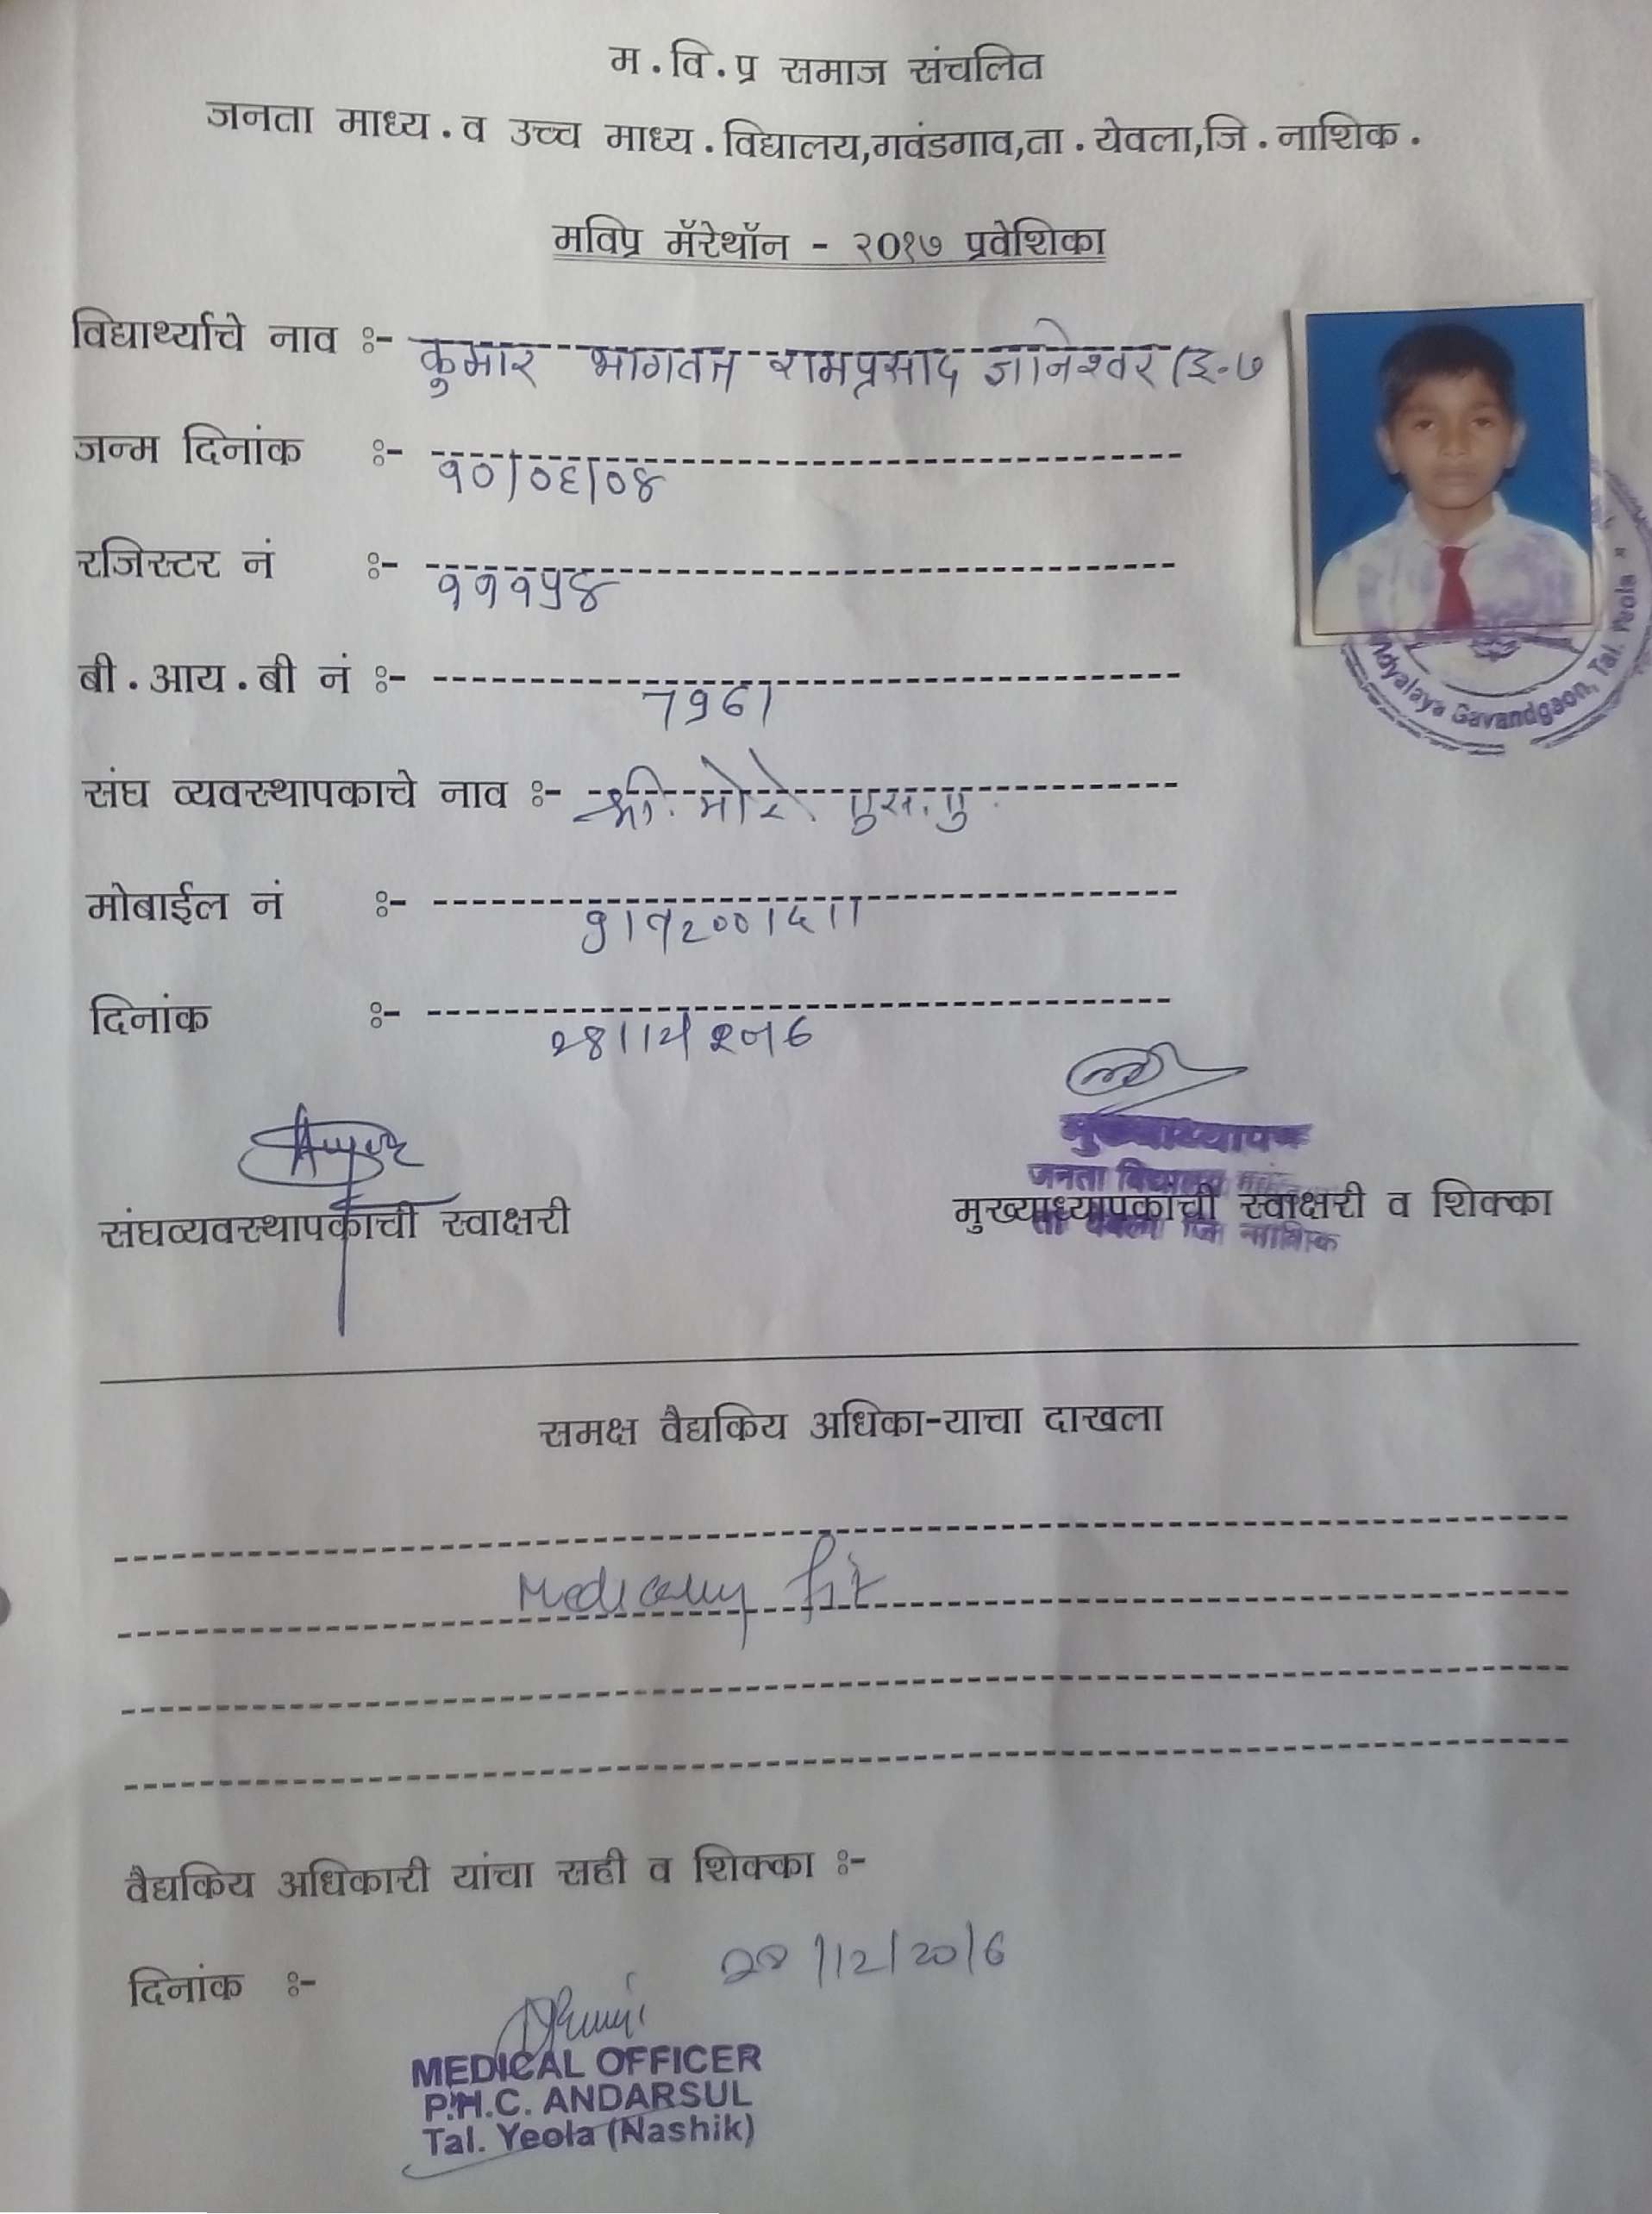 म.वि.प्र समाज संचलित
जनता माध्य.व उच्च माध्य.विद्यालय,गवंडगाव,ता.येवला,जि.नाशिक.
मविप्र मॅरेथॉन - २०१७ प्रवेशिका
विद्यार्थ्याचे नाव :- कुमार भागवत रामप्रसाद ज्ञानेश्वर (इ-७
जन्म दिनांक :- १०/०६/०४
रजिस्टर नं :- १११५४
बी.आय.बी नं :- 7961
संघ व्यवस्थापकाचे नाव :- श्री. मोरे एस.ए.
मोबाईल नं :-
दिनांक :- 28/12/2016
मुख्याध्यापक
जनता विद्यालय
संघव्यवस्थापकाची स्वाक्षरी
मुख्याध्यापकाची स्वाक्षरी व शिक्का
ता येवला जि नाशिक
Vidyalaya Gavandgaon, Tal. Yeola
समक्ष वैद्यकिय अधिका-याचा दाखला
Medically fit
वैद्यकिय अधिकारी यांचा सही व शिक्का :-
दिनांक :- 28/12/2016
MEDICAL OFFICER
P.H.C. ANDARSUL
Tal. Yeola (Nashik)